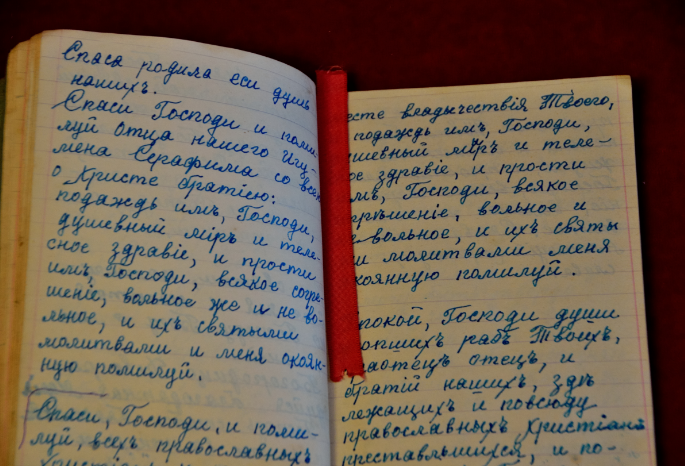 Спаса родила еси душъ
нашихъ.
Спаси Господи и поми-
луй отца нашего Игу-
мена Серафима со всею
о Христе братіею:
подаждь имъ, Господи,
душевный міръ и теле-
сное здравіе, и прости
имъ, Господи, всякое согре-
шеніе, вольное же и не во-
льное, и ихъ святыми
молитвами и меня окоян-
ную помилуй.
Спаси, Господи, и поми-
луй, всехъ православныхъ
Христіан
есте владычествія Твоего,
подаждь имъ, Господи,
ушевный міръ и теле-
ое здравіе, и прости
мъ, Господи, всякое
грешеніе, вольное и
е вольное, и ихъ святы
и молитвами меня
коянную помилуй.
покой, Господи души
опшихъ рабъ Твоихъ,
раотецъ отецъ, и
братій нашихъ, зде
лежащихъ и повсюду
православныхъ Христіанъ
преставльшихся, и по-